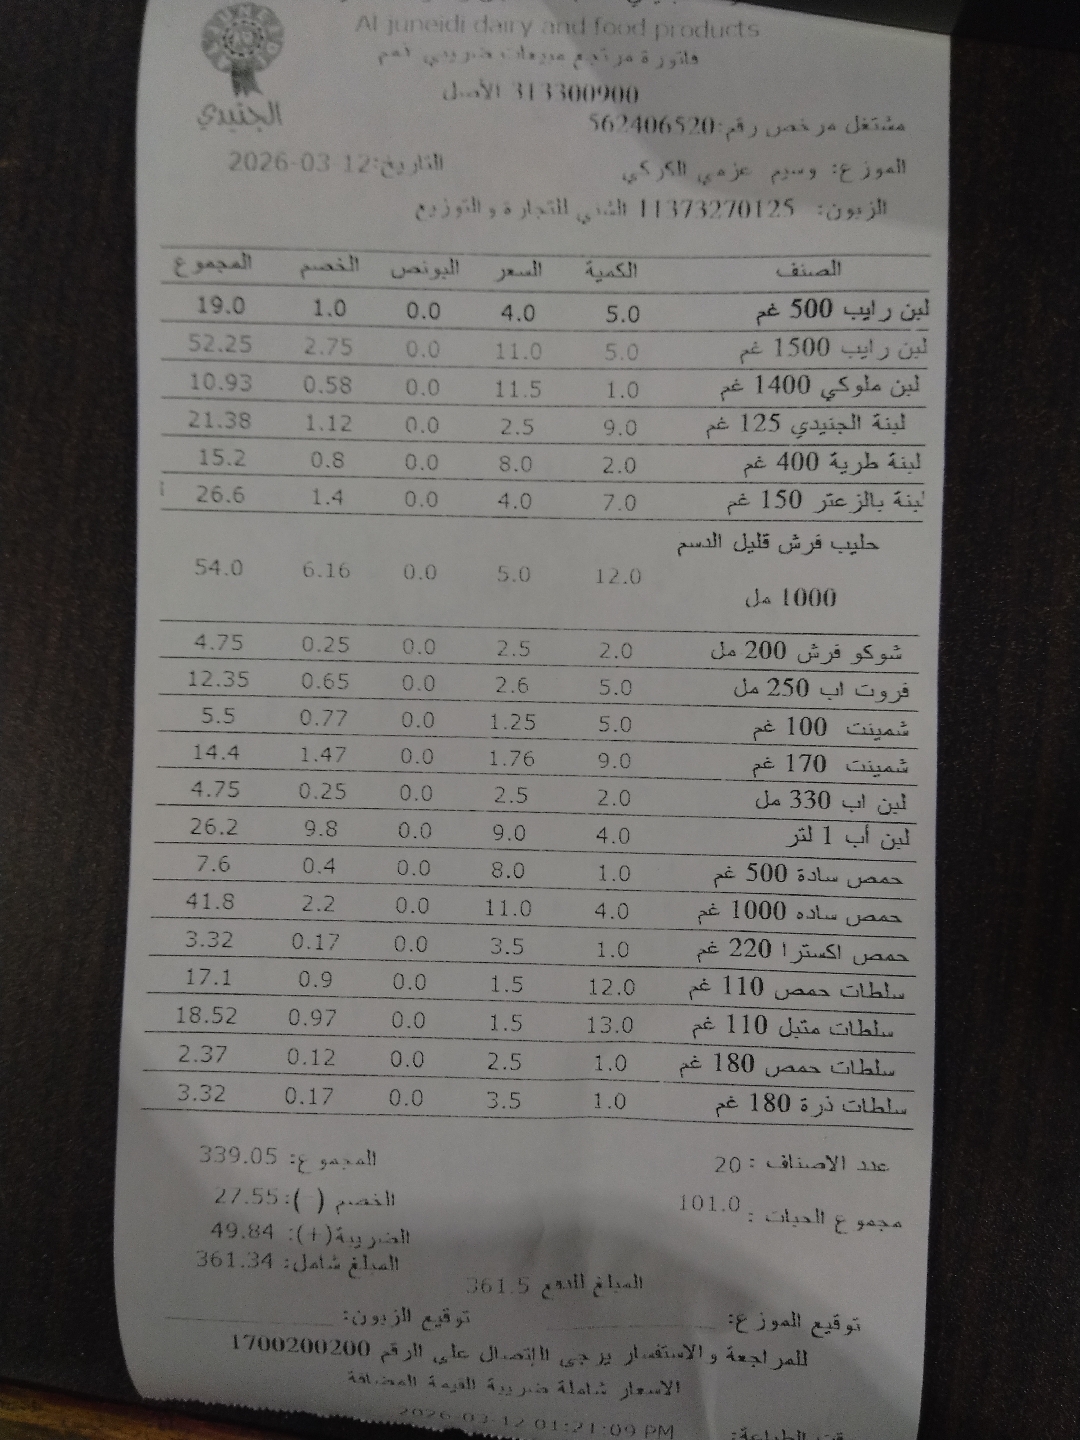 Al juneidi dairy and food products
فاتورة مرتجع مبيعات ضريبي رقم
313300900 الأصل
الجنيدي
مشتغل مرخص رقم:562406520
الموزع: وسيم عزمي الكركي التاريخ:2026-03-12
الزبون: 11373270125 الشني للتجارة والتوزيع
الصنف الكمية السعر البونص الخصم المجموع
لبن رايب 500 غم 5.0 4.0 0.0 1.0 19.0
لبن رايب 1500 غم 5.0 11.0 0.0 2.75 52.25
لبن ملوكي 1400 غم 1.0 11.5 0.0 0.58 10.93
لبنة الجنيدي 125 غم 9.0 2.5 0.0 1.12 21.38
لبنة طرية 400 غم 2.0 8.0 0.0 0.8 15.2
لبنة بالزعتر 150 غم 7.0 4.0 0.0 1.4 26.6
حليب فرش قليل الدسم
1000 مل 12.0 5.0 0.0 6.16 54.0
شوكو فرش 200 مل 2.0 2.5 0.0 0.25 4.75
فروت اب 250 مل 5.0 2.6 0.0 0.65 12.35
شمينت 100 غم 5.0 1.25 0.0 0.77 5.5
شمينت 170 غم 9.0 1.76 0.0 1.47 14.4
لبن اب 330 مل 2.0 2.5 0.0 0.25 4.75
لبن أب 1 لتر 4.0 9.0 0.0 9.8 26.2
حمص سادة 500 غم 1.0 8.0 0.0 0.4 7.6
حمص ساده 1000 غم 4.0 11.0 0.0 2.2 41.8
حمص اكسترا 220 غم 1.0 3.5 0.0 0.17 3.32
سلطات حمص 110 غم 12.0 1.5 0.0 0.9 17.1
سلطات متبل 110 غم 13.0 1.5 0.0 0.97 18.52
سلطات حمص 180 غم 1.0 2.5 0.0 0.12 2.37
سلطات ذرة 180 غم 1.0 3.5 0.0 0.17 3.32
عدد الاصناف : 20 المجموع: 339.05
مجموع الحبات : 101.0 الخصم (-): 27.55
الضريبة(+): 49.84
المبلغ شامل: 361.34
المبلغ للدفع 361.5
توقيع الموزع: توقيع الزبون:
للمراجعة والاستفسار يرجى الإتصال على الرقم 1700200200
الاسعار شاملة ضريبة القيمة المضافة
وقت الطباعة: 2026-03-12 01:21:09 PM